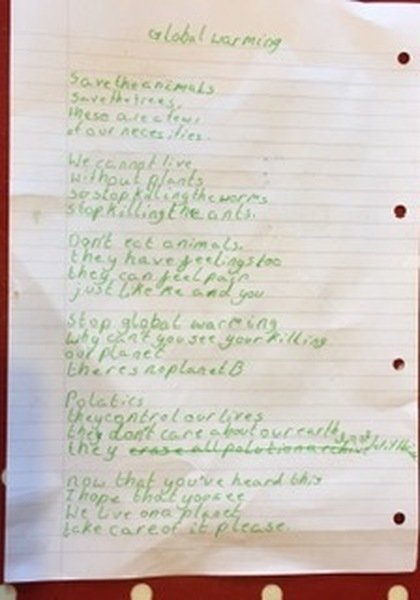 Global warming
Save the animals
Save the trees,
these are a few
of our necesities.
We cannot live
without plants
so stop killing the worms
stop killing the ants.
Don't eat animals.
they have feelings too
they can feel pain
just like me and you
Stop global warming
why can't you see your killing
our planet
theres no planet B
Polatics
they control our lives
they don't care about our earth
they erase all polution archive
now that you've heard this
I hope that you see
We live on a planet
take care of it please.